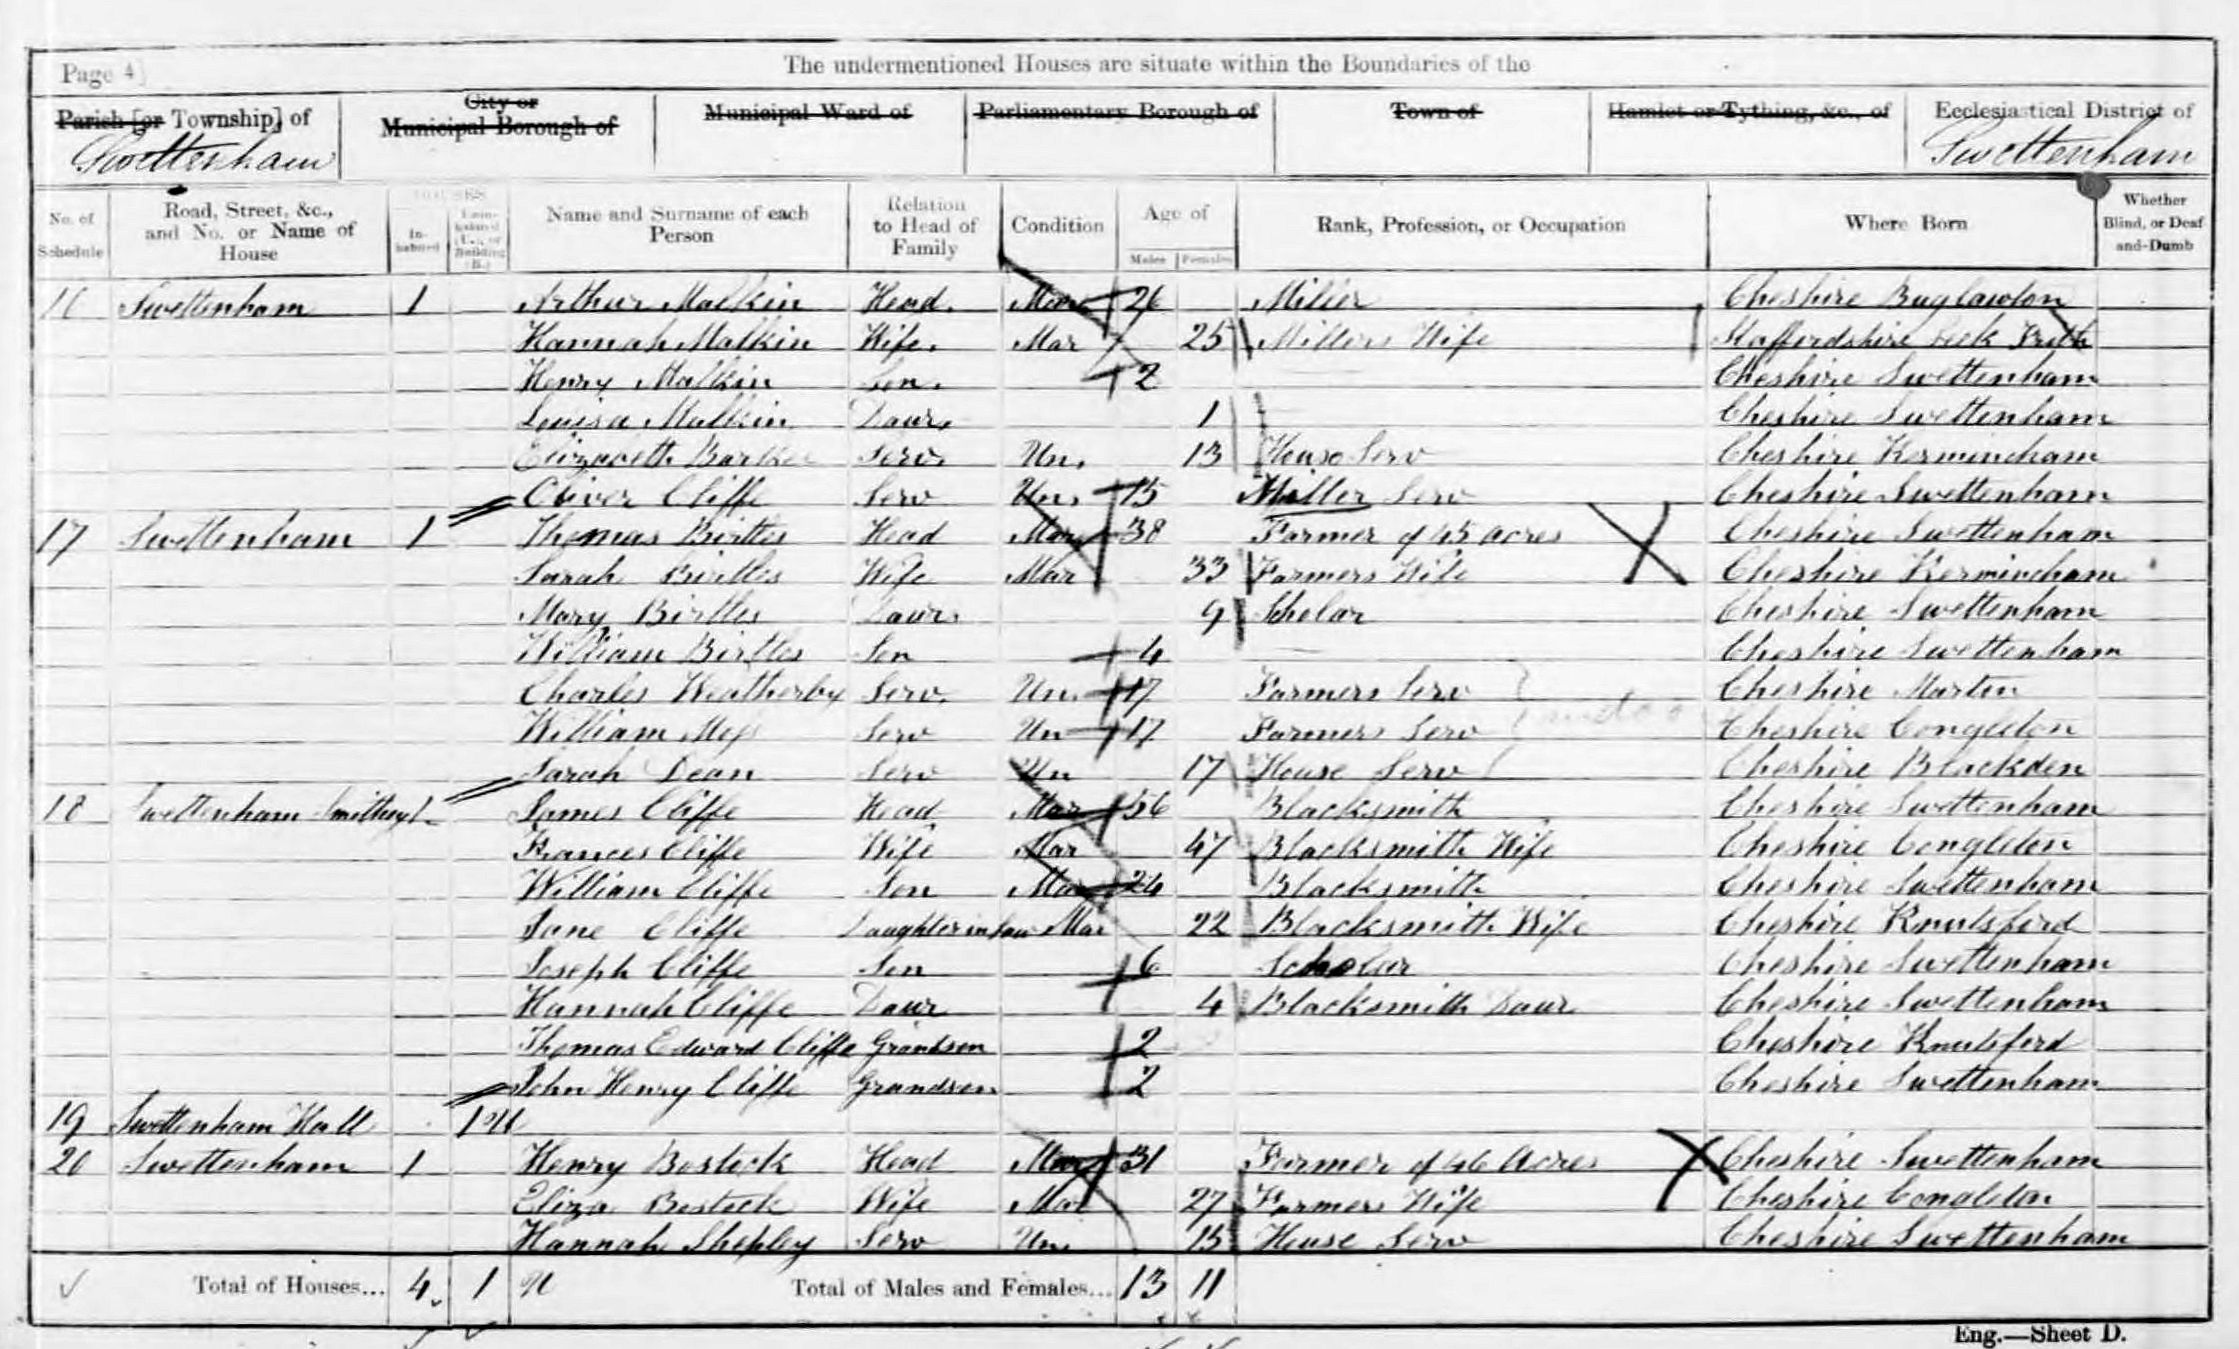 Page 4]
The undermentioned Houses are situate within the Boundaries of the
Parish [or Township] of
City or Municipal Borough of
Municipal Ward of
Parliamentary Borough of
Town of
Hamlet or Tything, &c., of
Ecclesiastical District of
Swettenham
Swettenham
No. of Schedule
Road, Street, &c., and No. or Name of House
HOUSES
In-habited
Unin-habited (U.), or Building (B.)
Name and Surname of each Person
Relation to Head of Family
Condition
Age of
Males
Females
Rank, Profession, or Occupation
Where Born
Whether Blind, or Deaf-and-Dumb
16 Swettenham 1 Arthur Malkin Head. Mar 26 Miller Cheshire Buglawton
Hannah Malkin Wife. Mar 25 Millers Wife Staffordshire Leek Frith
Henry Malkin Son. 2 Cheshire Swettenham
Louisa Malkin Daur. 1 Cheshire Swettenham
Elizabeth Barker Serv. Un. 13 House Serv Cheshire Kermincham
Oliver Cliffe Serv Un. 15 Miller Serv Cheshire Swettenham
17 Swettenham 1 Thomas Birtles Head Mar 38 Farmer of 45 acres Cheshire Swettenham
Sarah Birtles Wife Mar 33 Farmers Wife Cheshire Kermincham
Mary Birtles Daur. 9 Scholar Cheshire Swettenham
William Birtles Son 4 Cheshire Swettenham
Charles Weatherby Serv. Un. 17 Farmers Serv Cheshire Marton
William Serv Un 17 Farmers Serv Cheshire Congleton
Sarah Dean Serv Un 17 House Serv Cheshire Blackden
18 Swettenham 1 James Cliffe Head Mar 56 Blacksmith Cheshire Swettenham
Frances Cliffe Wife Mar 47 Blacksmith Wife Cheshire Congleton
William Cliffe Son Mar 24 Blacksmith Cheshire Swettenham
Jane Cliffe Daughter in law Mar 22 Blacksmith Wife Cheshire Knutsford
Joseph Cliffe Son 6 Scholar Cheshire Swettenham
Hannah Cliffe Daur 4 Blacksmith Daur Cheshire Swettenham
Thomas Edward Cliffe Grandson 2 Cheshire Knutsford
John Henry Cliffe Grandson 2 Cheshire Swettenham
19 Swettenham Hall 1 U
20 Swettenham 1 Henry Bostock Head Mar 31 Farmer of 46 Acres Cheshire Swettenham
Eliza Bostock Wife Mar 27 Farmers Wife Cheshire Congleton
Hannah Shepley Serv Un. 15 House Serv Cheshire Swettenham
Total of Houses... 4 1 U Total of Males and Females... 13 11
Eng.—Sheet D.